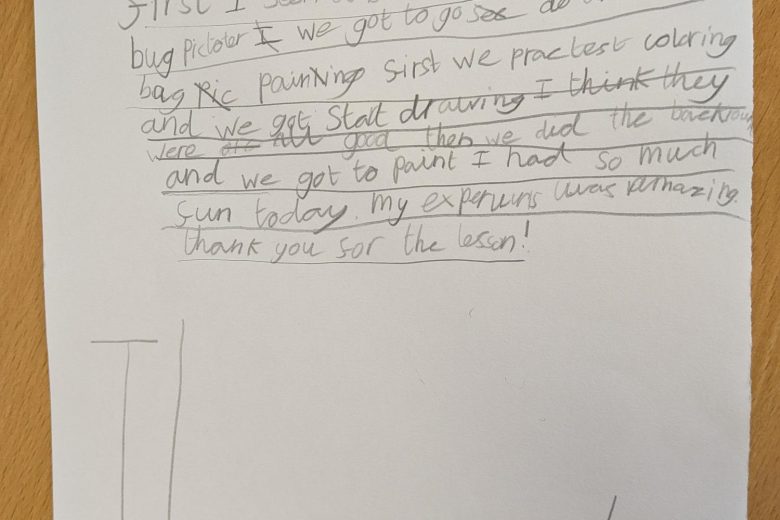 First I
bug Pictoter I we got to go see
bag Pic painNing sirst we practest coloring
and we got Statt drawing I think they
were are all good then we did the
and we got to paint I had so much
sun today. my experuins was amazing.
thank you sor the lesson!